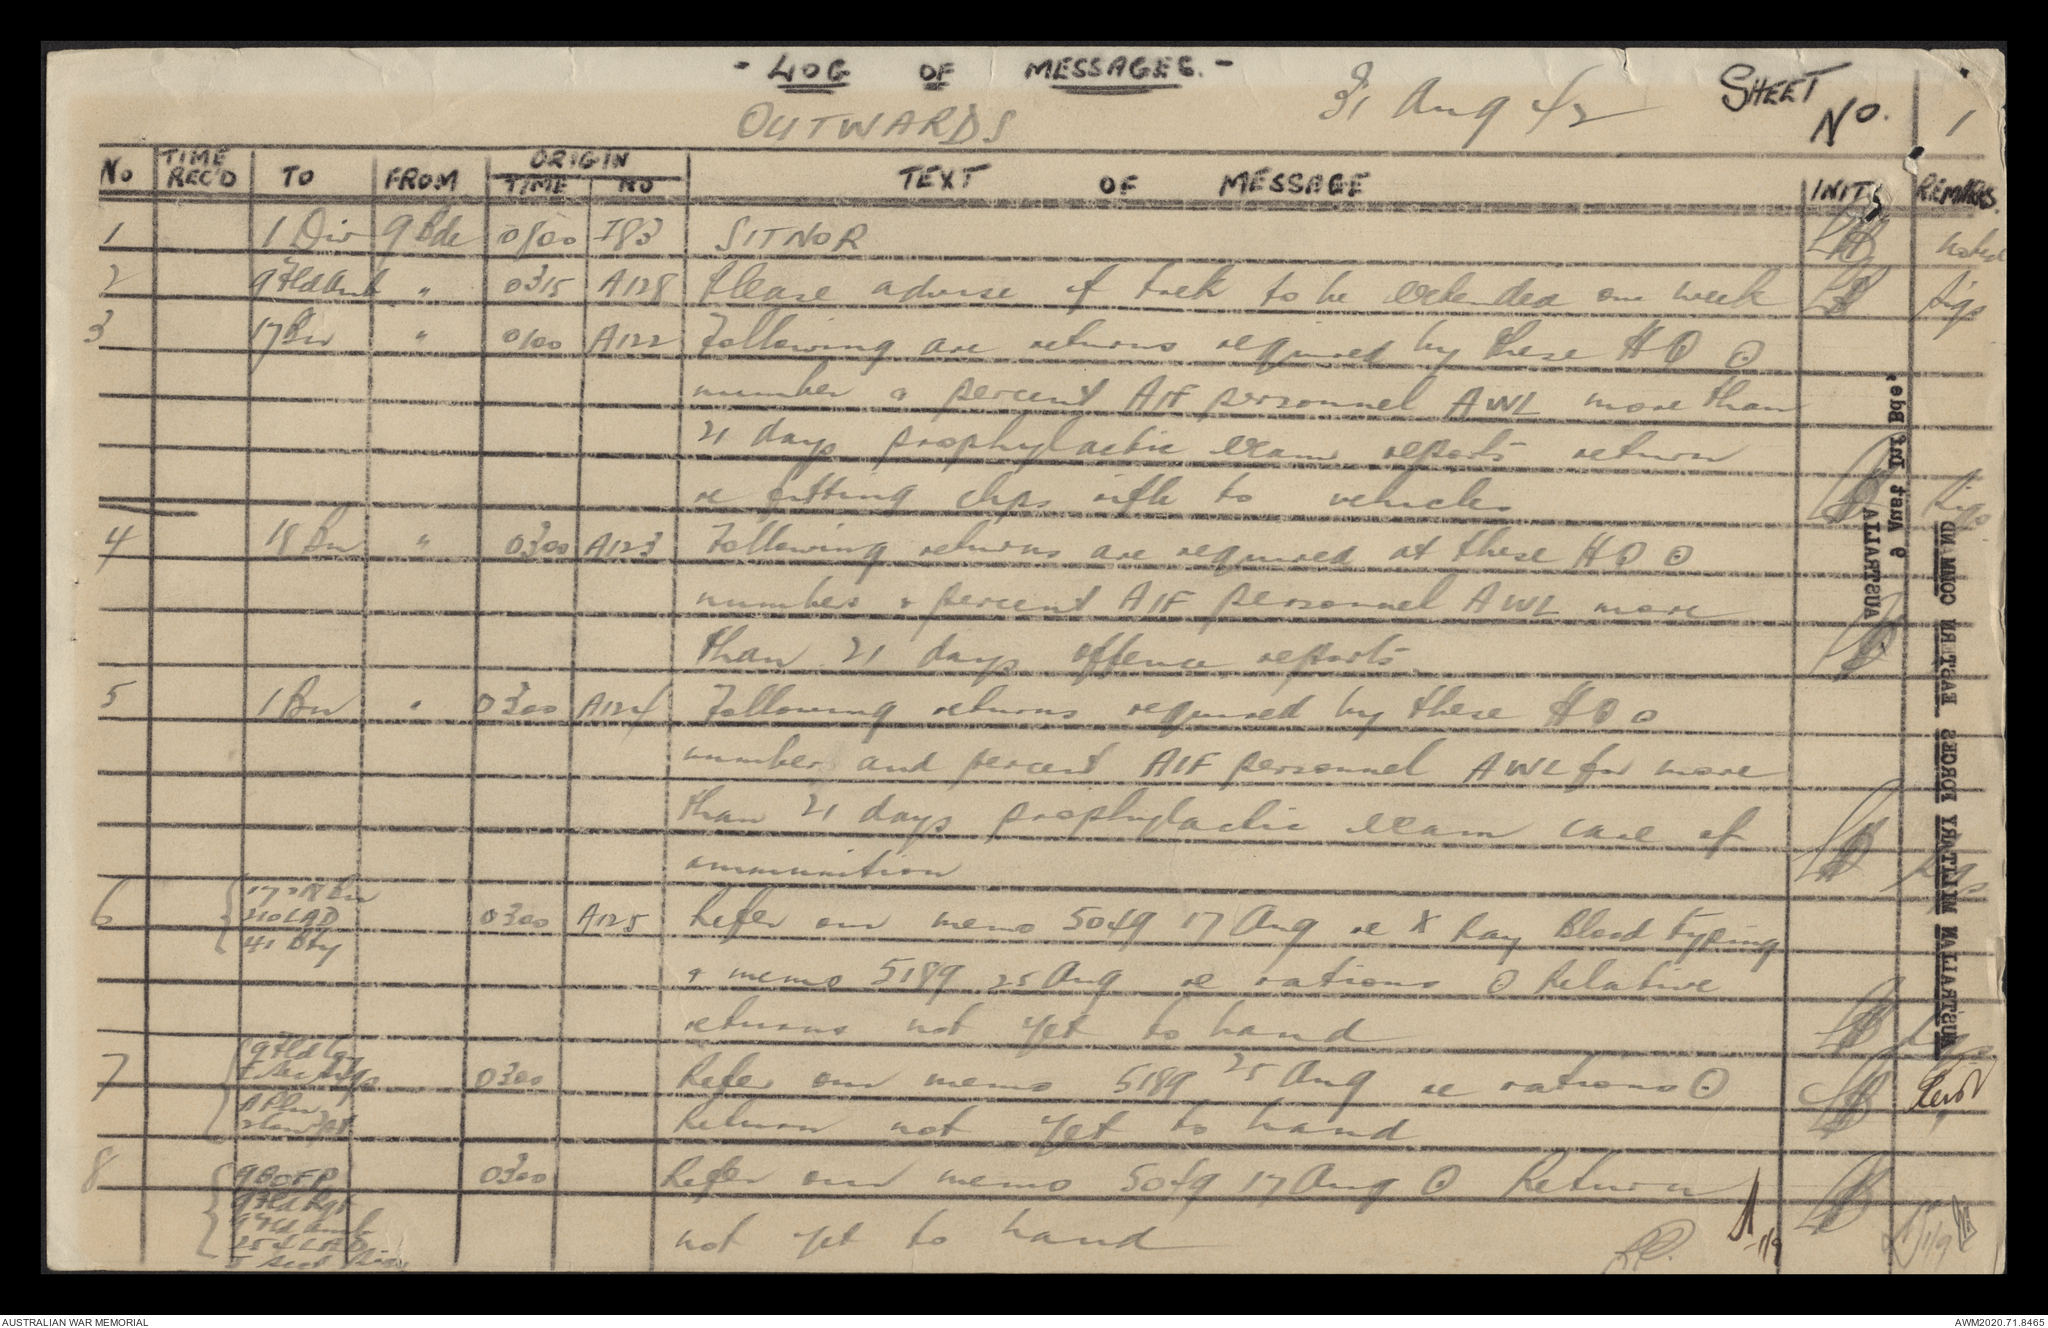 - LOG OF MESSAGES. -
OUTWARDS
31 Aug 42
SHEET No. 1
No TIME REC'D TO FROM ORIGIN TIME NO TEXT OF MESSAGE INITS REMARKS.
1 1 Div 9 Bde 0100 I83 SITNOR noted
2 9 Fld Amb " 0315 A128 Please advise if to be extended one week Sigs
3 17 Bn " 0100 A122 Following are returns required by these HQ ⊙
number & percent AIF personnel AWL more than
21 days prophylactic exam reports return
re fitting clips rifle to vehicles Sigs
4 18 Bn " 0300 A123 Following returns are required at these HQ ⊙
number & percent AIF personnel AWL more
than 21 days offence reports
5 1 Bn " 0300 A124 Following returns required by these HQ ⊙
number and percent AIF personnel AWL for more
than 21 days prophylactic exam care of
ammunition Sigs
6 17 & 18 Bn
210 LAD 0300 A125 Refer our memo 5049 17 Aug re X Ray Blood typing
41 Bty
& memo 5189 25 Aug re rations ⊙ Relative
returns not yet to hand Sigs
7 9 Fld
0300 Refer our memo 5189 25 Aug re rations ⊙
Return not yet to hand
8 9 BOFP 0300 Refer our memo 5049 17 Aug ⊙ Return
9 Fld Rgt
9 Fld Amb not yet to hand
254 LAD
1/9
1/9
9 Aust Inf Bde.
AUSTRALIA
AUSTRALIAN MILITARY FORCES EASTERN COMMAND
AUSTRALIAN WAR MEMORIAL
AWM2020.71.8465